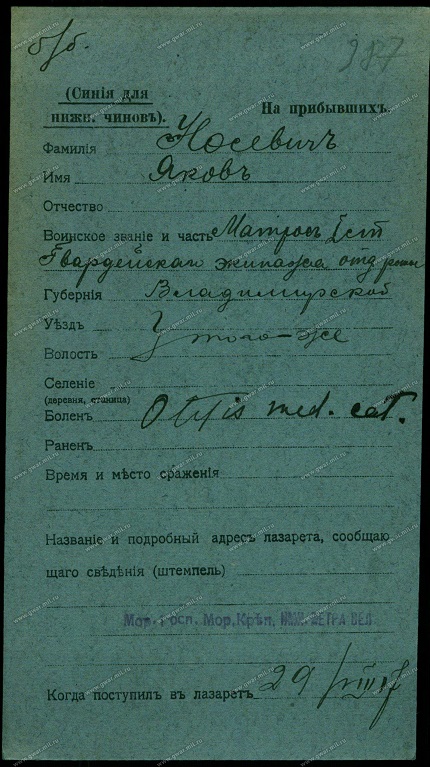 б/б. 387
(Синія для
нижн. чиновъ). На прибывшихъ.
Фамилія Носевичъ
Имя Яковъ
Отчество
Воинское званіе и часть Матросъ I ст
Гвардейскаго экипажа отд роты
Губернія Владимирской
Уѣздъ
Волость того-же
Селеніе
(деревня, станица)
Боленъ Otitis med. cat.
Раненъ
Время и мѣсто сраженія
Названіе и подробный адресъ лазарета, сообщаю
щаго свѣдѣнія (штемпель)
Мор. Госп. Мор. Крѣп. ИМП. ПЕТРА ВЕЛ.
Когда поступилъ въ лазаретъ 29
www.gwar.mil.ru